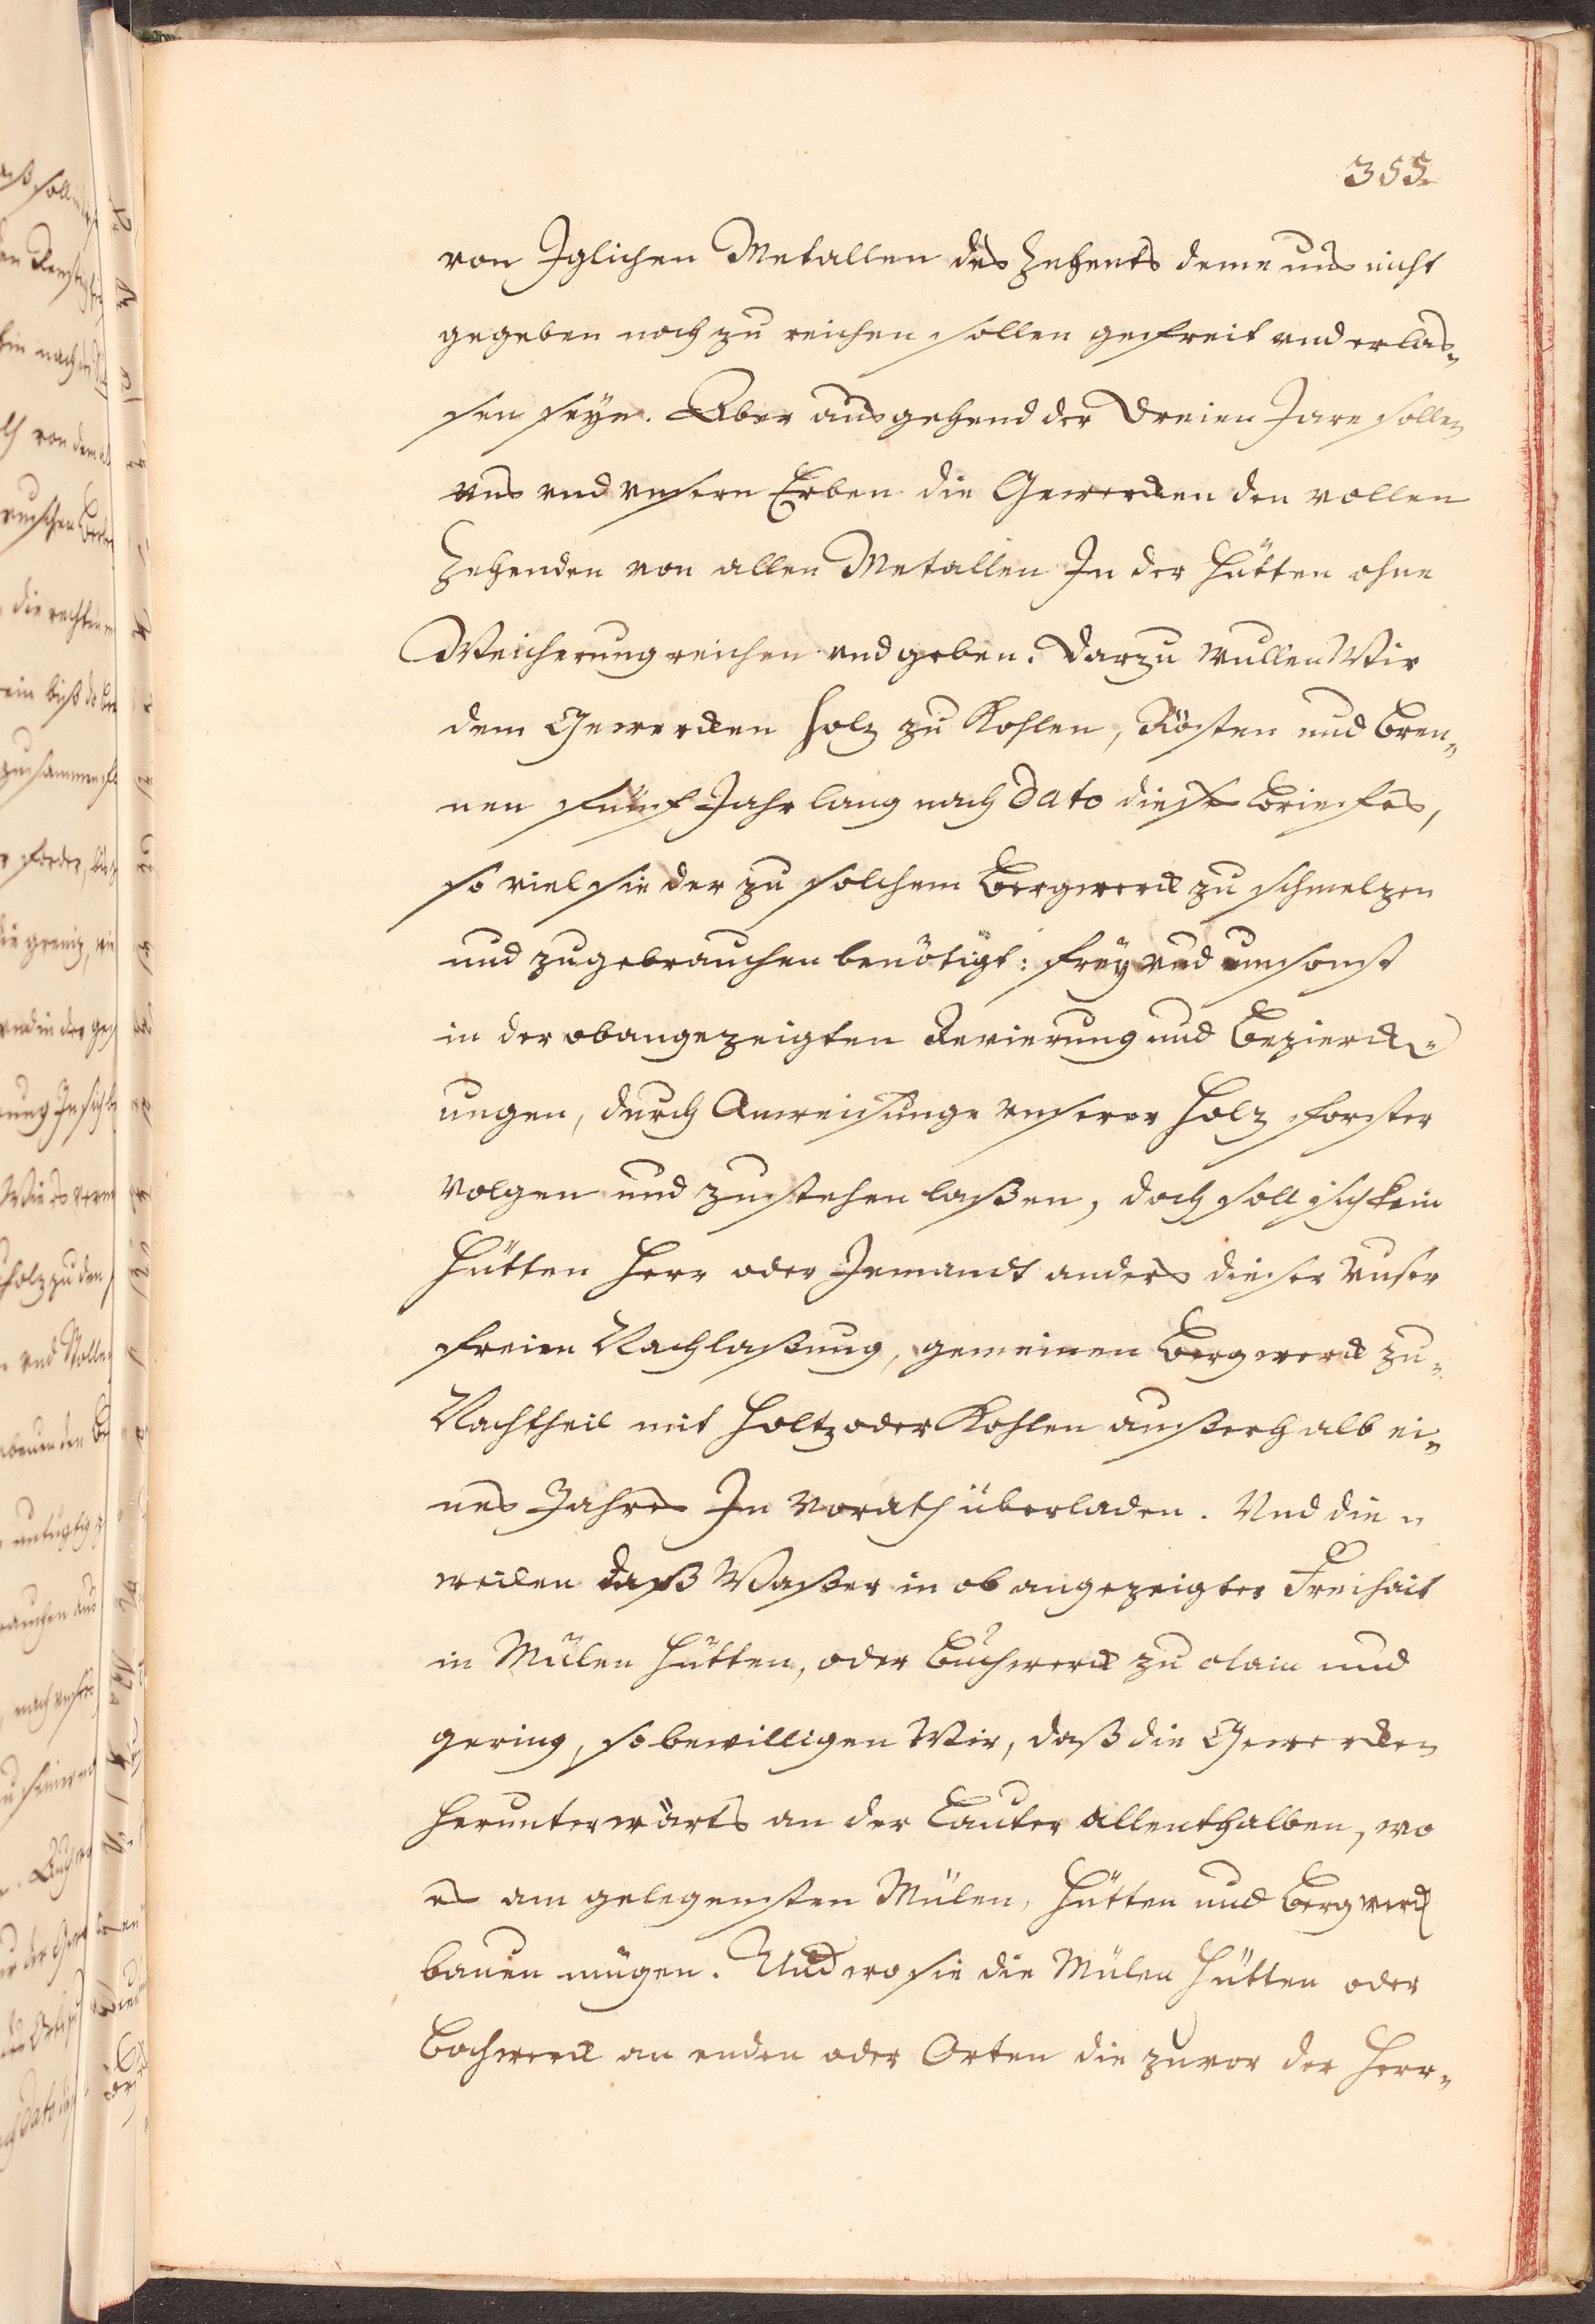 355.
von Iglichen Metallen des Zehents deme uns nicht
gegeben noch zu reichen sollen gefreit vnd erlas„
sen seyn. Aber ausgehend der Dreien Jare sollen
vns vnd vnsern Erben die Gewercken den vollen
Zehenden von allen Metallen In der Hütten ohne
Weicherung reichen vnd geben. Darzu wullen Wir
dem Gewercken Holz zu Kohlen, Rösten und Bren„
nen fünf Jahr lang nach Dato dieses Briefes,
so viel sie der zu solchem Bergwerck zu schmelzen
und zugebrauchen benötigt: frey vnd umsonst
in der obangezeigten Revierung und Bezierck„
ungen, durch Anweisunge vnserer Holz forster
volgen und zustehen laßen, doch soll sich kein
Hütten Herr oder Jemandt anders dieser vnser
freien Nachlaßung, gemeinen Bergwerck zu„
Nachtheil mit Holtz oder Kohlen außerhalb ei„
nes Jahres In Vorath überladen. Vnd die„
weilen daß Waßer in ob angezeigter Freihait
in Mülen Hütten, oder Buchwerck zu clain und
gering, so bewilligen Wir, daß die Gewercken
herunterwärts an der Lauter allenthalben, wo
es am gelegensten Mülen, Hütten und Bergwerck
bauen mügen. Und wo sie die Mülen Hütten oder
Bochwerck an enden oder Orten die zuvor der Herr„